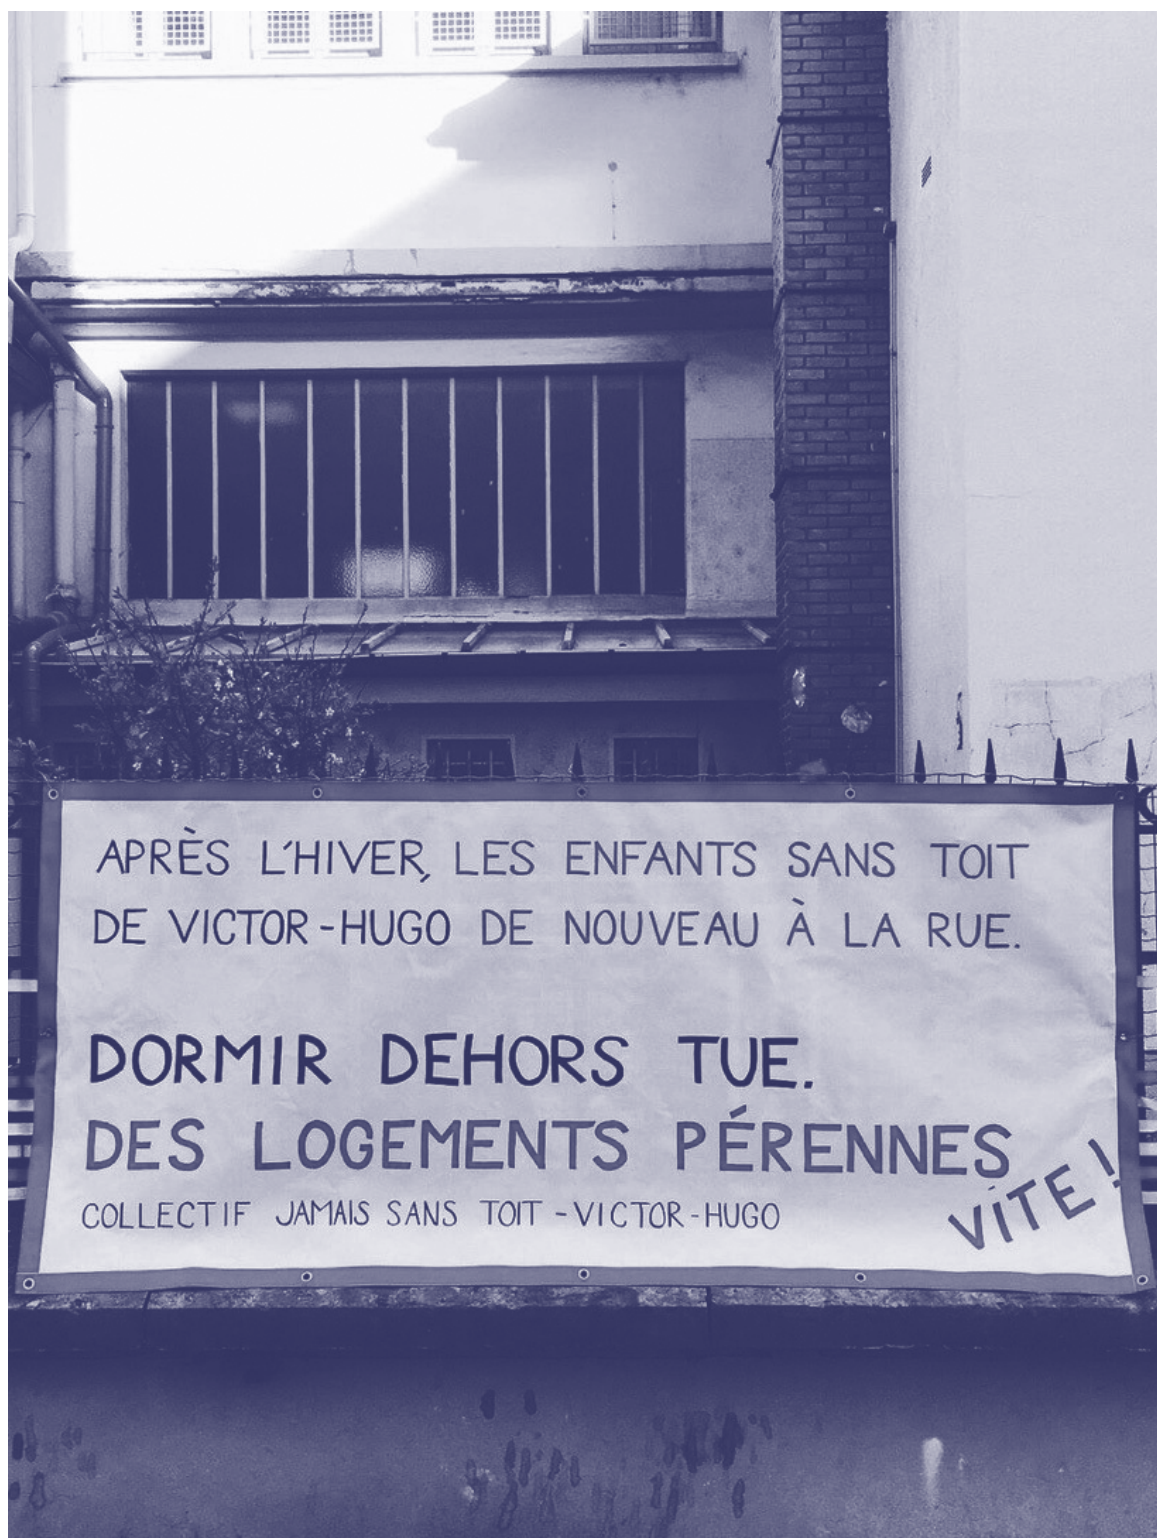 APRÈS L'HIVER, LES ENFANTS SANS TOIT
DE VICTOR-HUGO DE NOUVEAU À LA RUE.
DORMIR DEHORS TUE.
DES LOGEMENTS PÉRENNES
VITE !
COLLECTIF JAMAIS SANS TOIT - VICTOR-HUGO